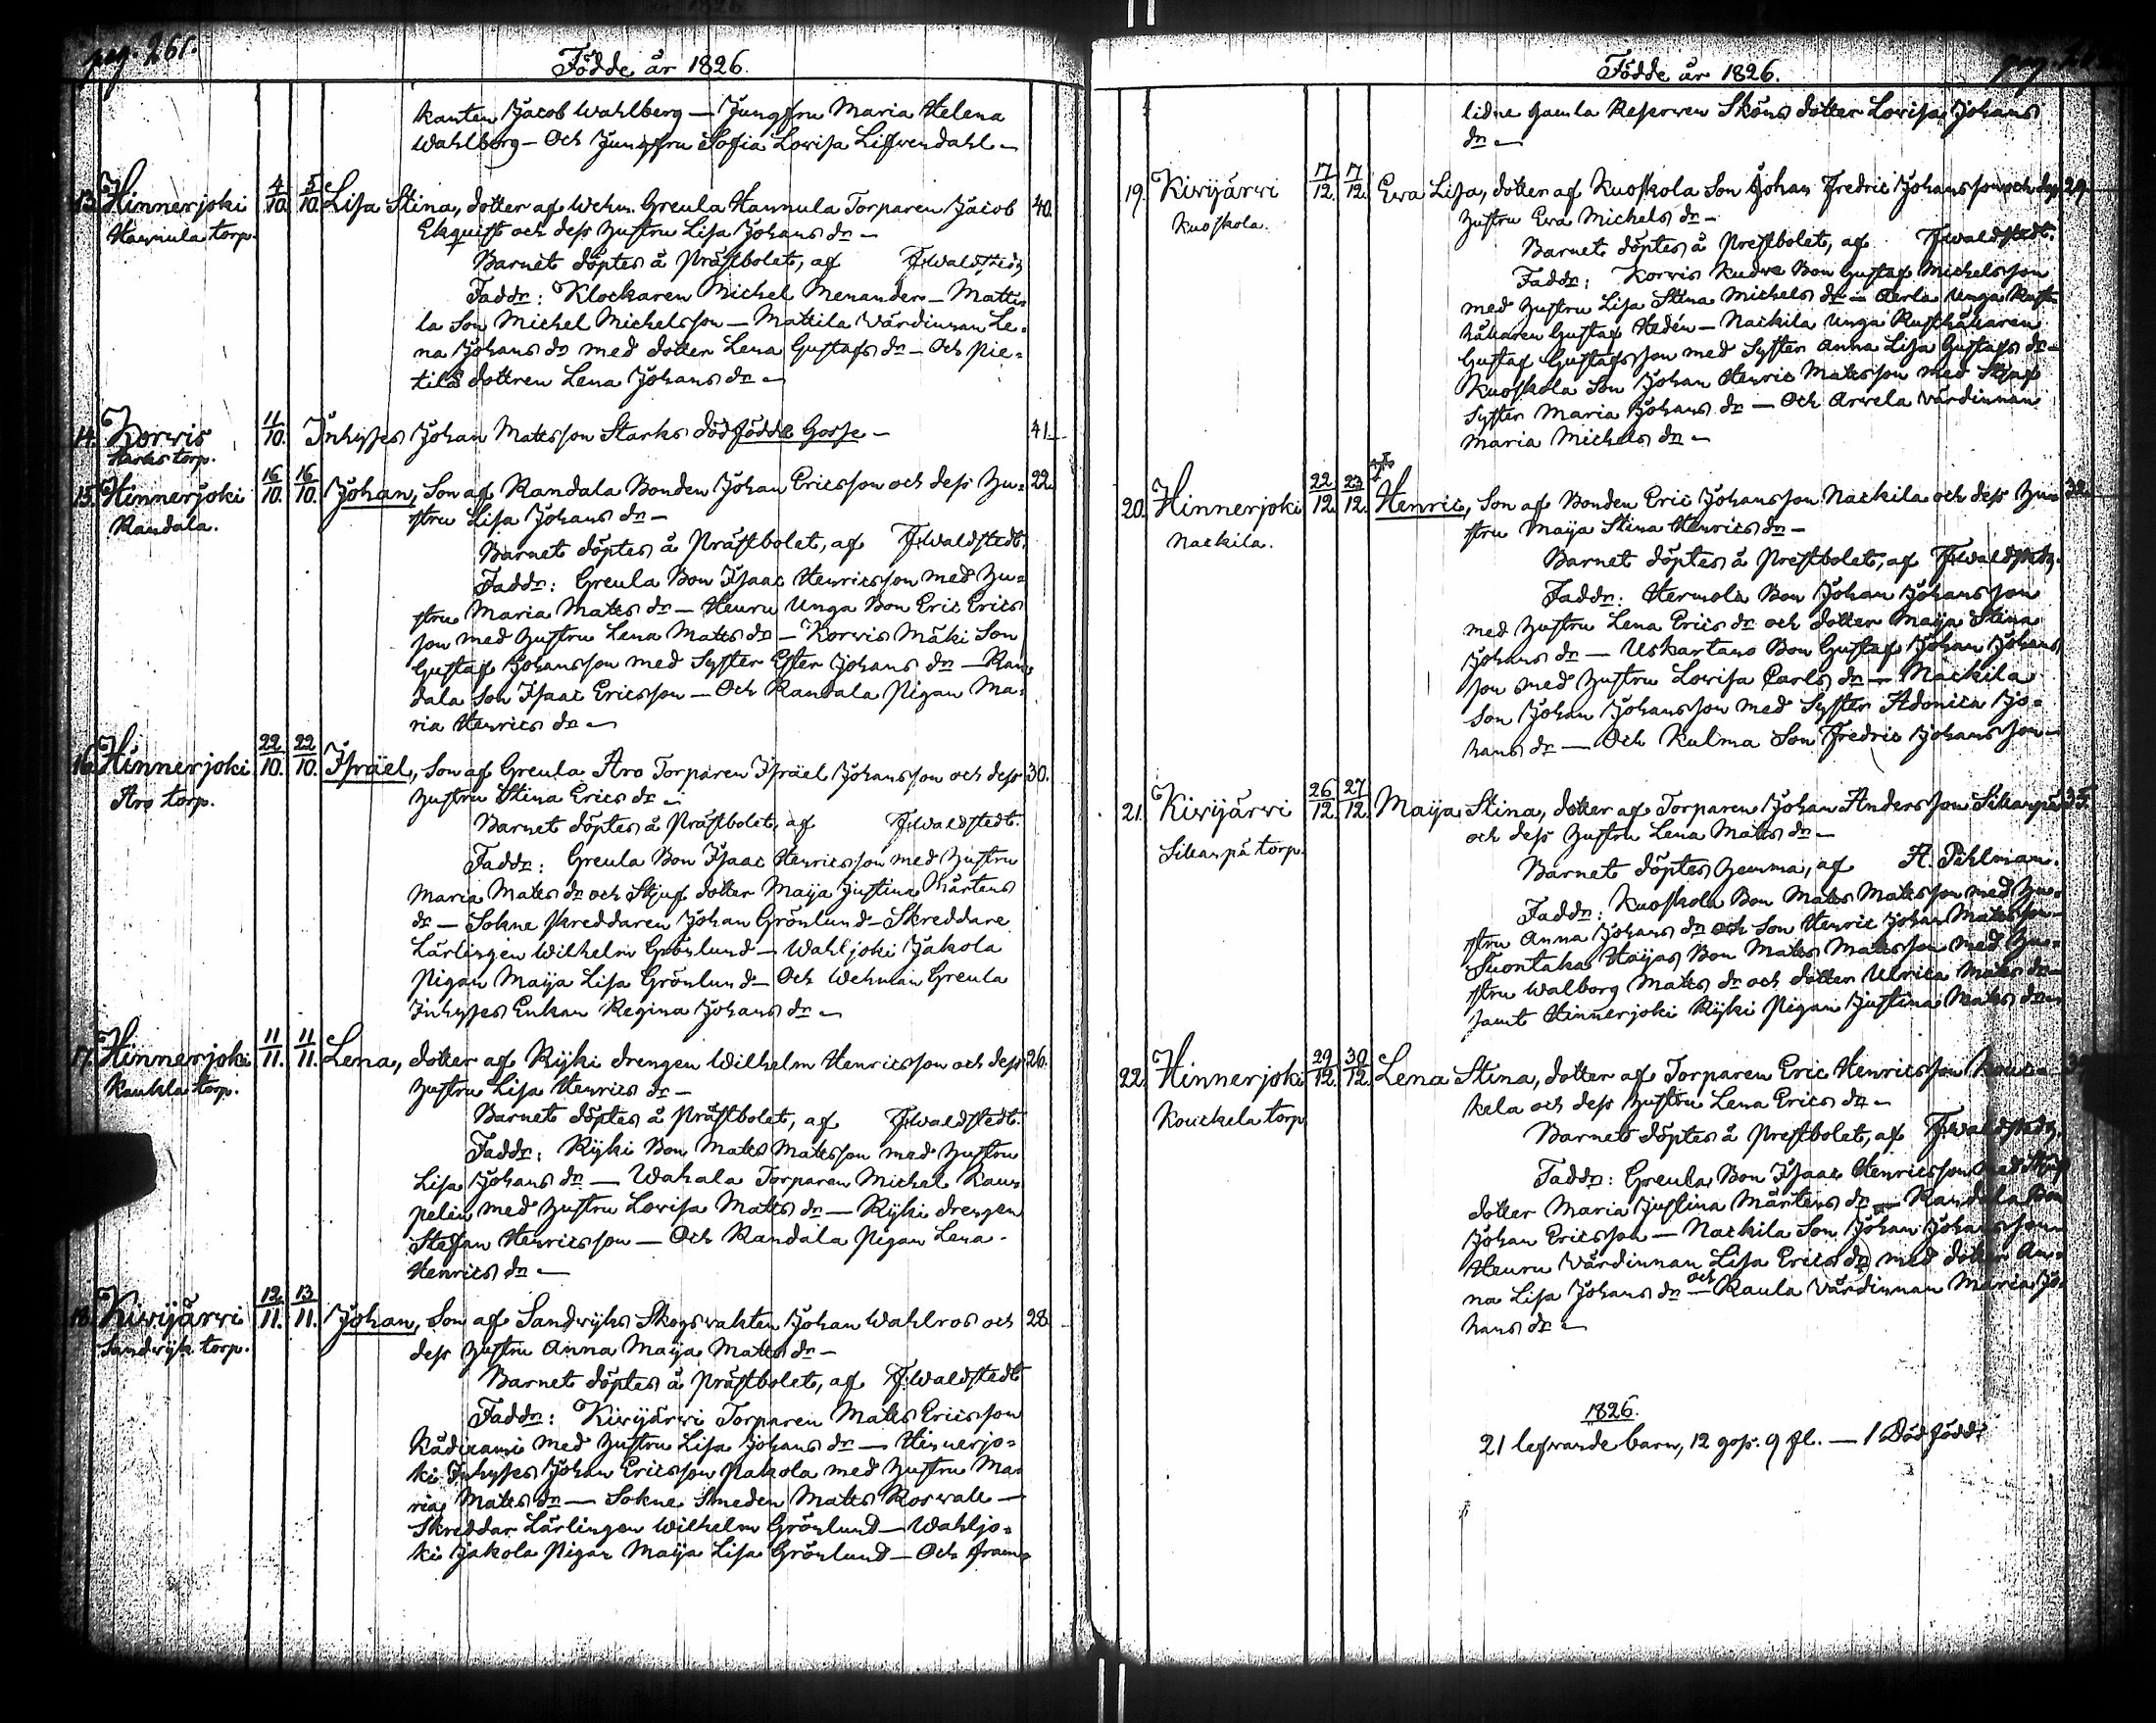 pag. 261.
Födde år 1826.
kanten Jacob Wahlberg — Jungfru Maria Helena
Wahlberg — Och Jungfru Sofia Lovisa Lifvendahl —
13. Hinnerjoki 4/10. 5/10. Lisa Stina, dotter af Wehm. Greula Hannula Torparen Jacob 40.
Hannula torp. Ekquist och dess hustru Lisa Johans dr —
Barnet döptes å Prästbolet, af F. Waldstedt
Faddr: Klockaren Michel Menander — Matti-
la Son Michel Michelsson — Mattila Värdinnan Le-
na Johans dr med dotter Lena Gustafs dr — Och Pie-
tilä dottren Lena Johans dr —
14. Korvis 11/10. Inhyses Johan Matsson Starks dödfödde Gosse — 41.
Starks torp.
15. Hinnerjoki 16/10. 16/10. Johan, Son af Randala Bonden Johan Ericsson och dess hu- 22.
Randala. stru Lisa Johans dr —
Barnet döptes å Prästbolet, af F. Waldstedt.
Faddr: Greula Bon Isaac Henricsson med hu-
stru Maria Mats dr — Heuru Unga Bon Eric Erics
son med hustru Lena Mats dr — Korvis Mäki Son
Gustaf Johansson med Syster Ester Johans dr — Ran-
dala Son Isaac Ericsson — Och Randala Pigan Ma-
ria Henrics dr —
16. Hinnerjoki 22/10. 22/10. Israel, Son af Greula Aro Torparen Israel Johansson och dess 30.
Aro torp. hustru Stina Erics dr —
Barnet döptes å Prästbolet, af F. Waldstedt.
Faddr: Greula Bon Isaac Henricsson med hustru
Maria Mats dr och Stjuf dotter Maija Justina Mårtens
dr — Sokne Skreddaren Johan Grönlund — Skreddare
Lärlingen Wilhelm Grönlund — Wahljoki Jakola
Pigan Maija Lisa Grönlund — Och Wehmän Greula
Inhyses Enkan Regina Johans dr —
17. Hinnerjoki 11/11. 11/11. Lena, dotter af Rijki drengen Wilhelm Henricsson och dess 26.
Raukla torp. hustru Lisa Henrics dr —
Barnet döptes å Prästbolet, af F. Waldstedt.
Faddr: Rijki Bon Mats Matsson med hustru
Lisa Johans dr — Wahala Torparen Michel Kau-
pelin med hustru Lovisa Mats dr — Rijki drengen
Steffan Henricsson — Och Randala Pigan Lena
Henrics dr —
18. Kivijärvi 12/11. 13/11. Johan, Son af Sandvijks Skogsvakten Johan Wahlros och 28.
Sandvijk torp. dess hustru Anna Maija Mats dr —
Barnet döptes å Prästbolet, af F. Waldstedt
Faddr: Kivijärvi Torparen Mats Ericsson
Kädirami med hustru Lisa Johans dr — Hinnerjo-
ki Inhyses Johan Ericsson Pakola med hustru Ma-
ria Mats dr — Sokne Smeden Mats Roswall —
Skreddar Lärlingen Wilhelm Grönlund — Wahljo-
ki Jakola Pigan Maija Lisa Grönlund — Och fram-
Födde år 1826.
lidne gamla Reserven Sköns dotter Lovisa Johans
dr —
19. Kivijärvi 17/12. 17/12. Eva Lisa, dotter af Kuoskola Son Johan Fredric Johansson och dess 29.
Kuoskola. hustru Eva Michels dr —
Barnet döptes å Prestbolet, af F. Waldstedt.
Faddr: Korvis Kudva Bon Gustaf Michelsson
med hustru Lisa Stina Michels dr — Aerla Unga Rust-
hållaren Gustaf Hedén — Nackila Unga Rusthållaren
Gustaf Gustafsson med Syster Anna Lisa Gustafs dr —
Kuoskola Son Johan Henric Matsson med Stjuf
Syster Maria Johans dr — Och Arvela värdinnan
Maria Michels dr —
20. Hinnerjoki 22/12. 23/12. Henric, Son af Bonden Eric Johansson Nackila och dess hu- 32.
Nackila. stru Maija Stina Henrics dr —
Barnet döptes å Prestbolet, af F. Waldstedt.
Faddr: Hermola Bon Johan Johansson
med hustru Lena Erics dr och dotter Maija Stina
Johans dr — Uskartano Bon Gustaf Johan Johans
son med hustru Lovisa Carls dr — Nackila
Son Johan Johansson med Syster Adonica Jo-
hans dr — Och Kulma Son Fredric Johansson —
21. Kivijärvi 26/12. 27/12. Maija Stina, dotter af Torparen Johan Andersson Sikanpä 35.
Sikanpä torp. och dess hustru Lena Mats dr —
Barnet döptes hemma, af A. Pihlman.
Faddr: Kuoskola Bon Mats Matsson med hu-
stru Anna Johans dr och Son Henric Johan Matsson —
Tuontaka Haijas Bon Mats Matsson med hu-
stru Walborg Mats dr och dotter Ulrica Mats dr —
samt Hinnerjoki Rijki Pigan Justina Mats dr —
22. Hinnerjoki 29/12. 30/12. Lena Stina, dotter af Torparen Eric Henricsson Kouc-
Kouckela torp. kela och dess hustru Lena Erics dr —
Barnet döptes å Prestbolet, af F. Waldstedt.
Faddr: Greula Bon Isaac Henricsson med Stjuf
dotter Maria Justina Mårtens dr — Randala Bon
Johan Ericsson — Nackila Son Johan Johansson —
Heuru Värdinnan Lisa Erics dr med dotter An-
na Lisa Johans dr — och Raula Värdinnan Maria Jo-
hans dr —
1826.
21 lefvande barn, 12 goss. 9 fl. — 1 Dödfödd